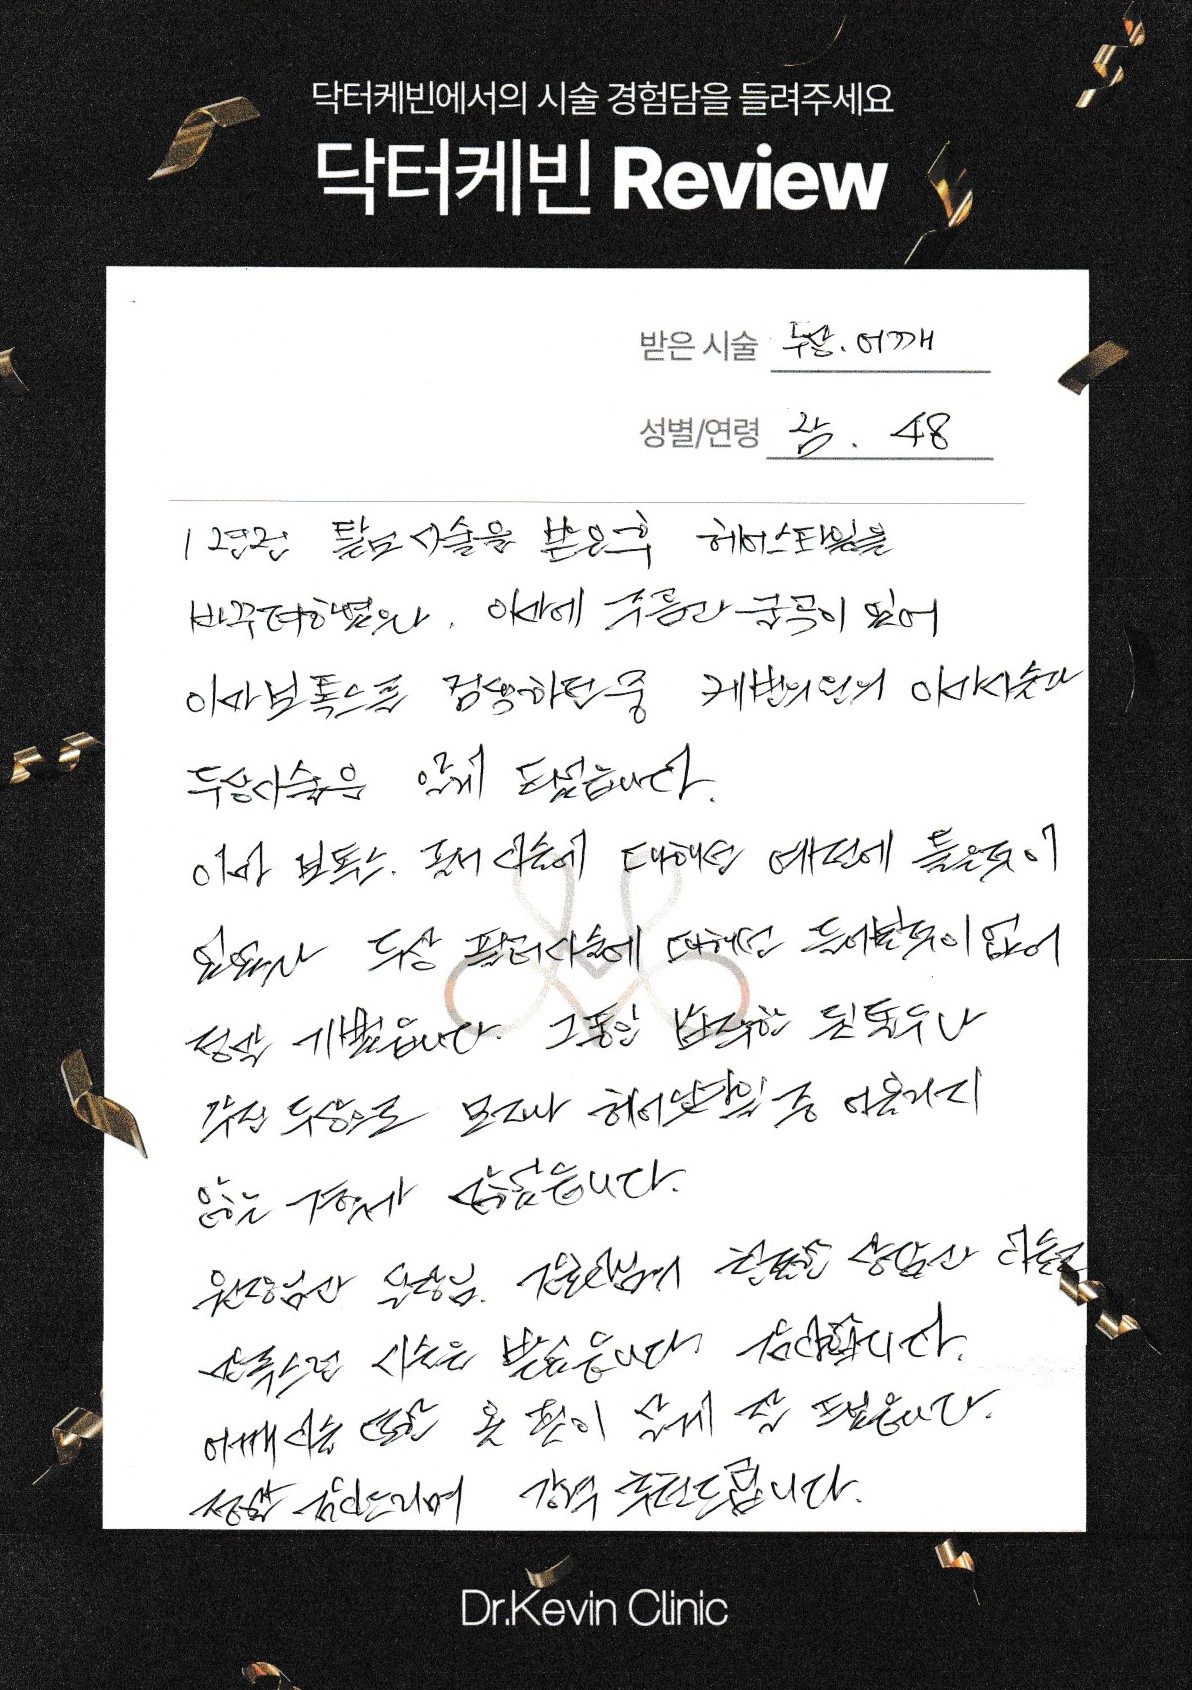 닥터케빈에서의 시술 경험담을 들려주세요
닥터케빈 Review
받은 시술 두상. 어깨
성별/연령 남. 48
1년전 탈모시술을 받은후 헤어스타일을
바꾸려하였으나, 이마에 주름과 굴곡이 있어
이마보톡스를 검색하던중 케빈의원의 이마시술과
두상시술을 알게 되었습니다.
이마 보톡스. 필러 시술에 대해선 예전에 들은적이
있으나 두상 필러시술에 대해선 들어본적이 없어
정말 기뻤습니다. 그동안 납작한 뒷통수나
각진 두상으로 모자나 헤어스타일 중 어울리지
않는 경우가 많았습니다.
원장님과 실장님. 간호사님께 친절한 상담과
만족스런 시술을 받았습니다. 감사합니다.
어깨시술 또한 옷 핏이 살게 잘 되었습니다.
정말 감사드리며 강력 추천드립니다.
Dr.Kevin Clinic